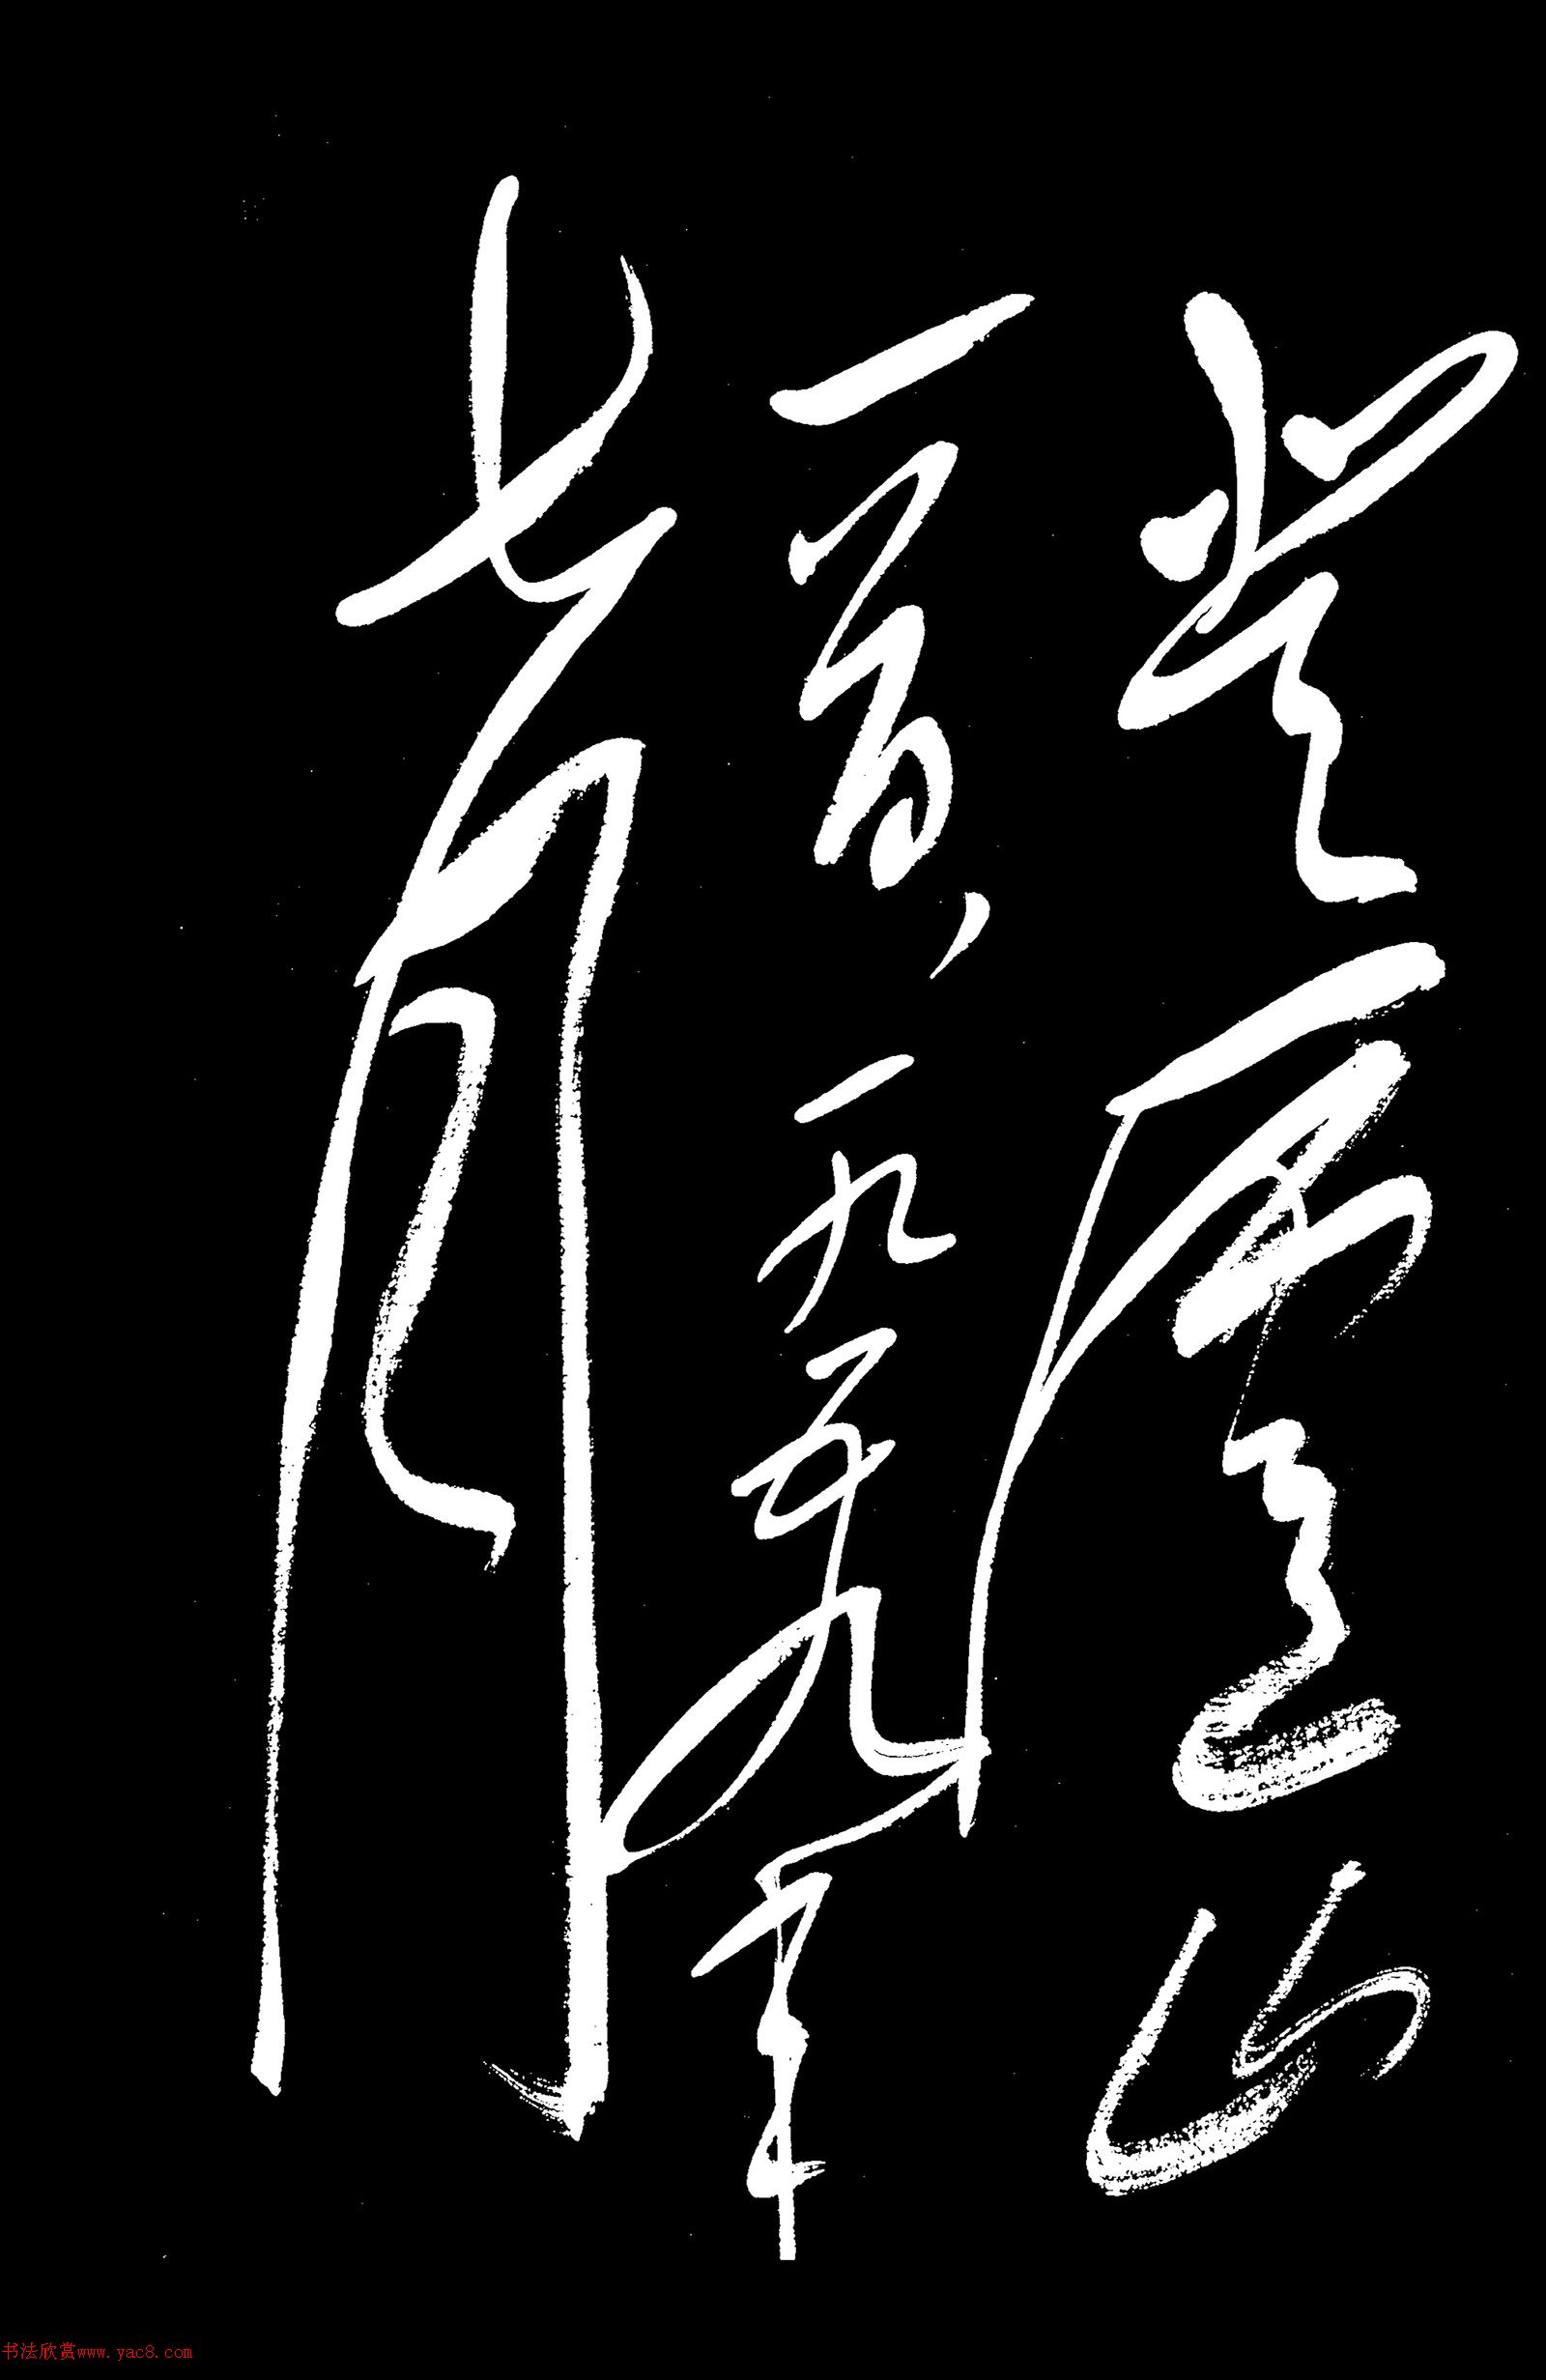 登庐山
一首、一九五九年
七月
书法欣赏www.yac8.com